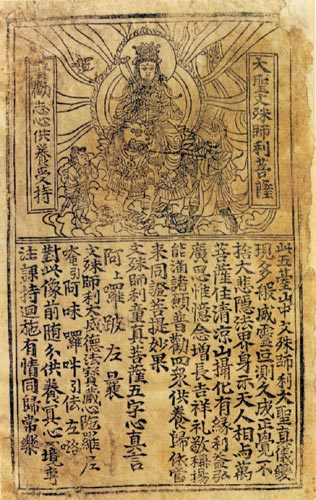 大聖文殊師利菩薩
普勸志心供養受持
此五臺山中文殊師利大聖真儀變
現多般威靈叵測久成正覺不
捨大悲隱法界身示天人相與萬
菩薩住清涼山攝化有緣利益弘
廣思惟憶念增長吉祥礼敬稱揚
能滿諸願普勸四眾供養歸依當
來同證菩提妙果
文殊師利童真菩薩五字心真言
阿上囉跛左曩
文殊師利大威德法寶藏心陀羅尼
唵引阿味囉吽引佉左路
對此像前隨分供養冥心一境專
注課持迴施有情同歸常樂